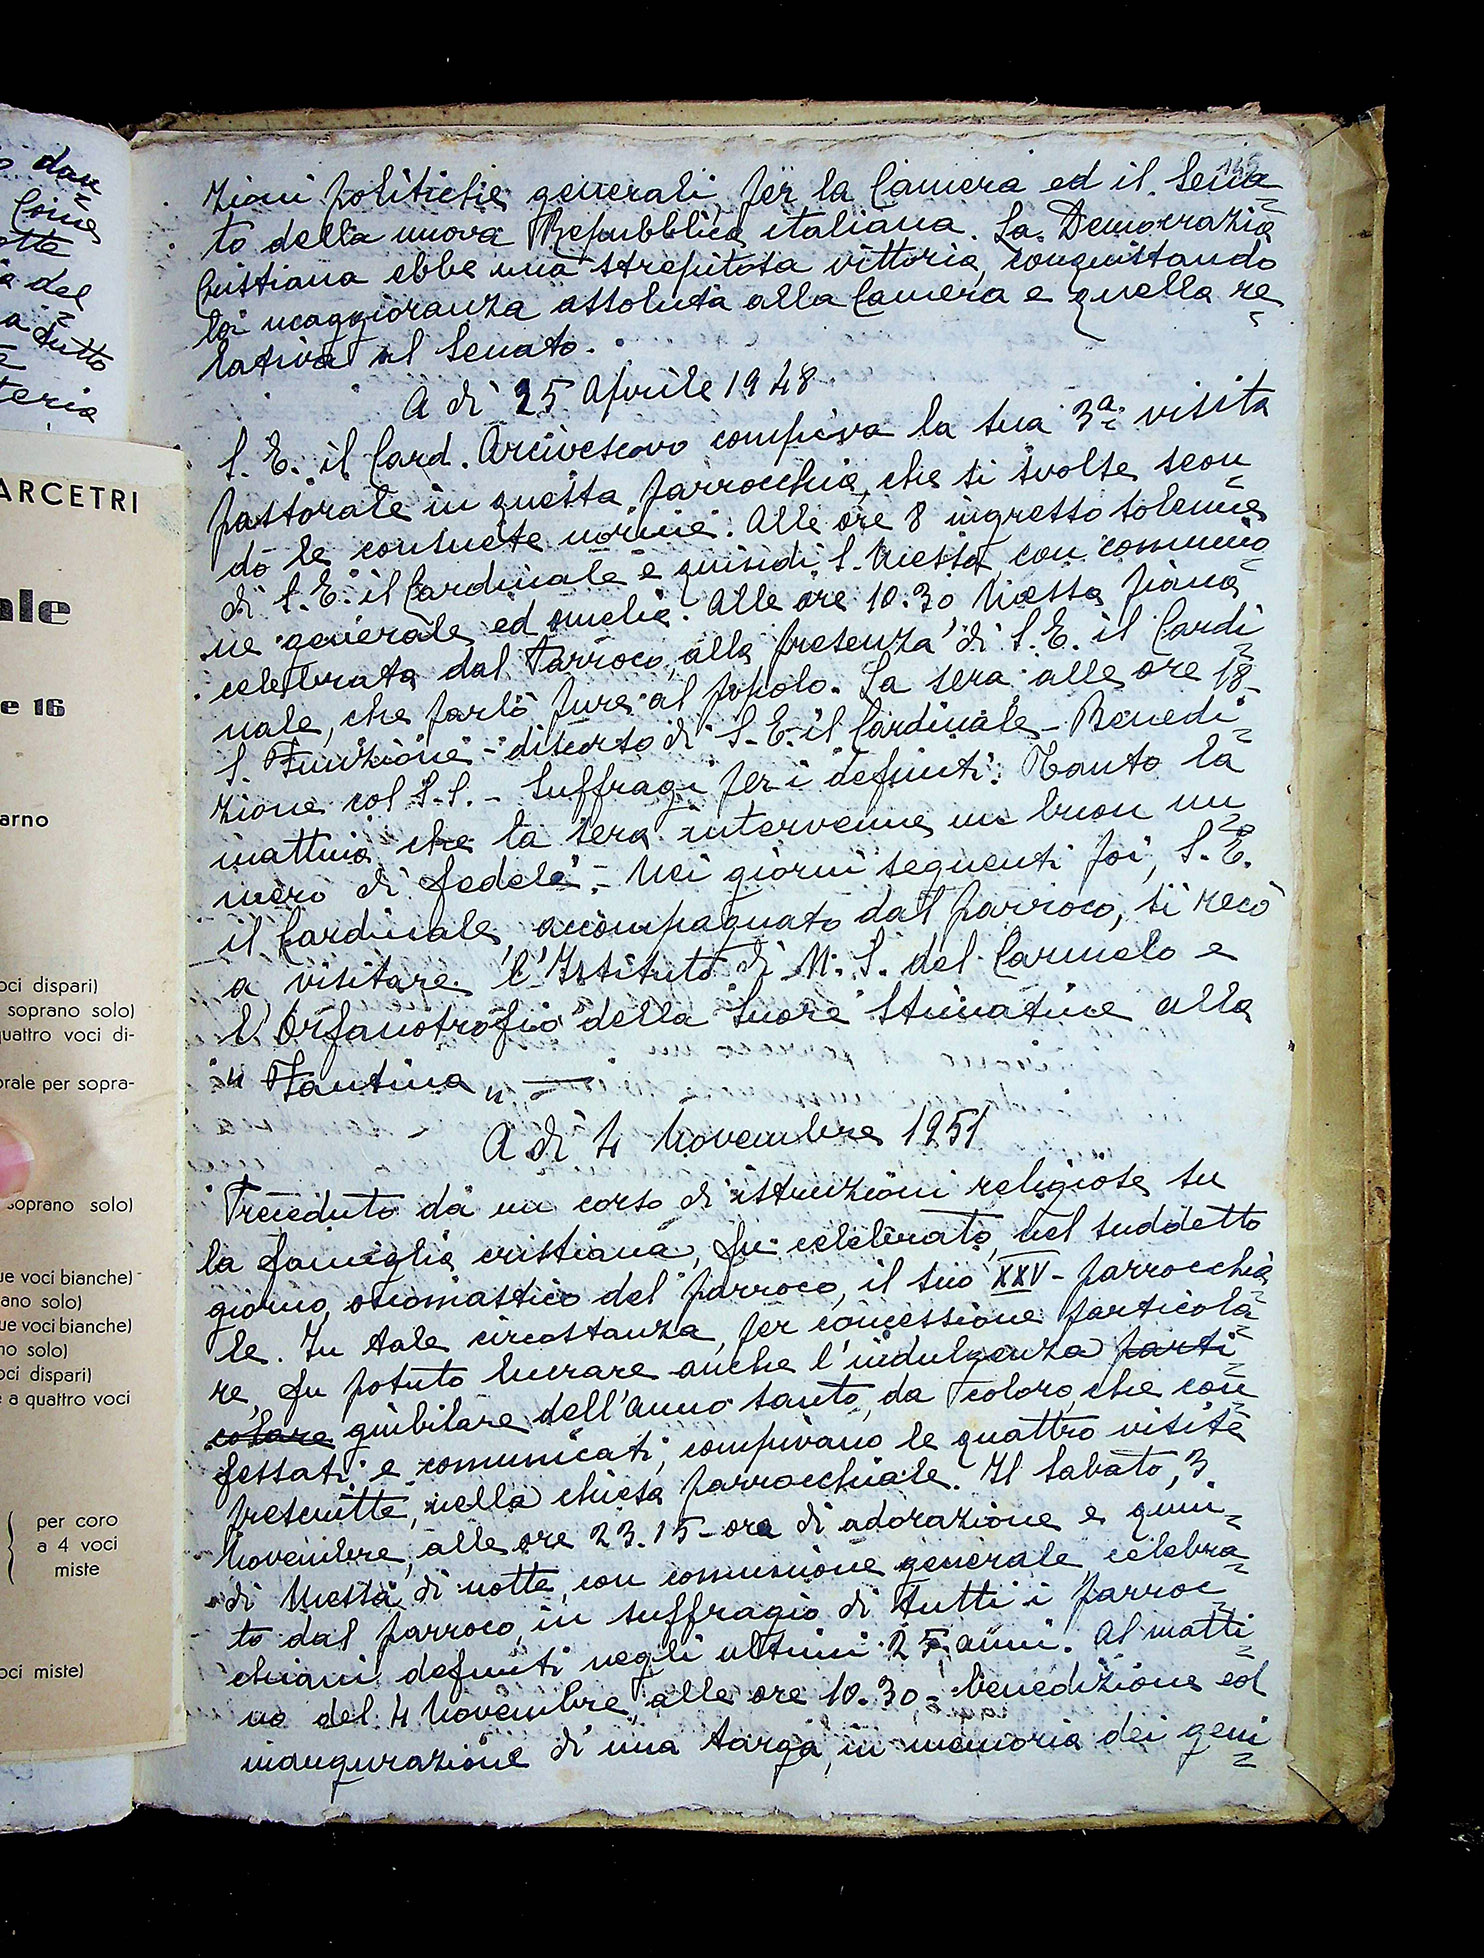 o dan
Come
otte
a del
a tutto
e
teria
ARCETRI
ale
e 16
arno
oci dispari)
soprano solo)
quattro voci di-
orale per sopra-
soprano solo)
ue voci bianche)
ano solo)
ue voci bianche)
no solo)
oci dispari)
e a quattro voci
per coro
a 4 voci
miste
oci miste)
145
zioni politiche generali, per la Camera ed il Sena=
to della nuova Repubblica italiana. La Democrazia
Cristiana ebbe una strepitosa vittoria, conquistando
la maggioranza assoluta alla Camera e quella re=
lativa al Senato.
A dì 25 Aprile 1948
S. E. il Card. Arcivescovo compiva la sua 3ª visita
pastorale in questa parrocchia, che si svolse secon=
do le consuete norme. Alle ore 8 ingresso solenne
di S. E. il Cardinale e quindi S. Messa con comunio=
ne generale ed omelia. Alle ore 10.30 Messa piana
celebrata dal Parroco, alla presenza di S. E. il Cardi=
nale, che parlò pure al popolo. La sera alle ore 18-
S. Funzione - discorso di S. E. il Cardinale - Benedi=
zione col S.S. - Suffragi per i defunti. Tanto la
mattina che la sera intervenne un buon nu=
mero di fedeli. - Nei giorni seguenti poi, S. E.
il Cardinale, accompagnato dal parroco, si recò
a visitare l'Istituto di N. S. del Carmelo e
l'Orfanotrofio della Suore Stimatine alla
"Fantina" —
A dì 4 Novembre 1951
Preceduto da un corso di istruzioni religiose su
la famiglia cristiana, fu celebrato, nel suddetto
giorno, onomastico del parroco, il suo XXV- parrocchia
le. In tale circostanza, per concessione particola=
re, fu potuto lucrare anche l'indulgenza parti=
colare giubilare dell'anno santo, da coloro, che con=
fessati e comunicati, compivano le quattro visite
prescritte, nella chiesa parrocchiale. Il Sabato, 3
Novembre, alle ore 23.15- ora di adorazione e quin=
di Messa di notte, con comunione generale, celebra=
to dal parroco, in suffragio di tutti i parroc=
chiani defunti negli ultimi 25 anni. Al matti=
no del 4 Novembre, alle ore 10.30, = benedizione ed
inaugurazione di una targa, in memoria dei geni=